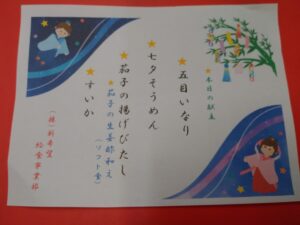 ★本日の献立
★五目いなり
★七夕そうめん
★茄子の揚げびたし
★茄子の生姜酢和え
(ソフト食)
★すいか
(株)新希望
給食事業部